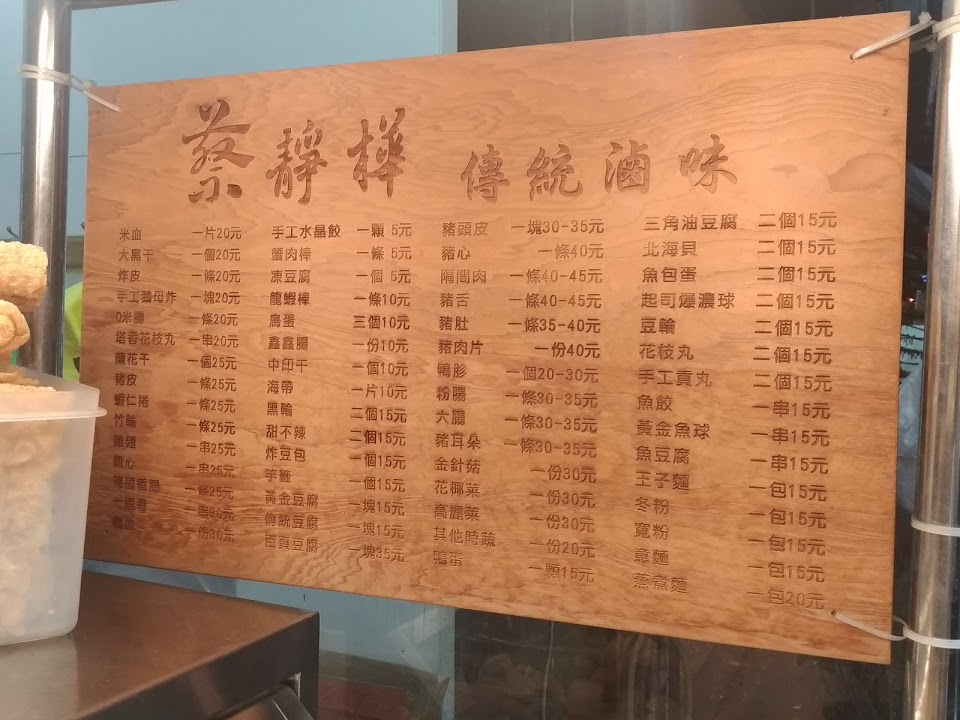 蔡靜樺 傳統滷味
米血 一片20元
大黑干 一個20元
炸皮 一條20元
手工鵝母炸 一塊20元
Q米腸 一條20元
塔香花枝丸 一串20元
蘭花干 一個25元
豬皮 一條25元
蝦仁捲 一條25元
竹輪 一條25元
雞翅 一串25元
雞心 一串25元
德國香腸 一條25元
30元
一份30元
手工水晶餃 一顆 5元
蟹肉棒 一條 5元
凍豆腐 一個 5元
龍蝦棒 一條10元
鳥蛋 三個10元
鑫鑫腸 一份10元
中印干 一個10元
海帶 一片10元
黑輪 二個15元
甜不辣 二個15元
炸豆包 一個15元
芋籤 一個15元
黃金豆腐 一塊15元
傳統豆腐 一塊15元
百頁豆腐 一塊35元
豬頭皮 一塊30-35元
豬心 一條40元
隔間肉 一條40-45元
豬舌 一條40-45元
豬肚 一條35-40元
豬肉片 一份40元
鴨胗 一個20-30元
粉腸 一條30-35元
大腸 一條30-35元
豬耳朵 一條30-35元
金針菇 一份30元
花椰菜 一份30元
高麗菜 一份30元
其他時蔬 一份20元
鴨蛋 一顆15元
三角油豆腐 二個15元
北海貝 二個15元
魚包蛋 二個15元
起司爆濃球 二個15元
豆輪 二個15元
花枝丸 二個15元
手工貢丸 二個15元
魚餃 一串15元
黃金魚球 一串15元
魚豆腐 一串15元
王子麵 一包15元
冬粉 一包15元
寬粉 一包15元
意麵 一包15元
蒸煮麵 一包20元